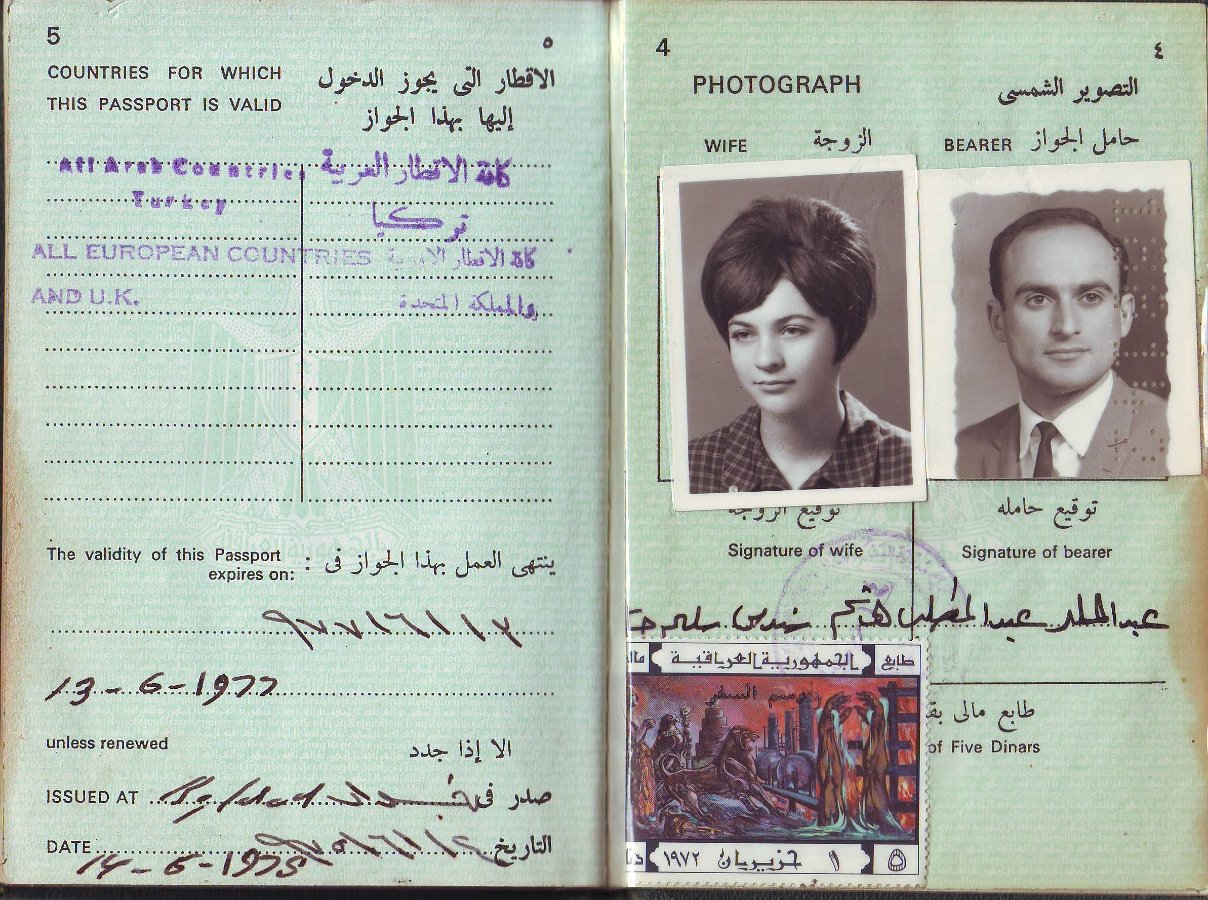 5
٥
COUNTRIES FOR WHICH
THIS PASSPORT IS VALID
الاقطار التى يجوز الدخول
إليها بهذا الجواز
All Arab Countries
كافة الاقطار العربية
Turkey
تركيا
ALL EUROPEAN COUNTRIES
كافة الاقطار الاوربية
AND U.K.
والمملكة المتحدة
The validity of this Passport
expires on:
ينتهى العمل بهذا الجواز فى :
١٣/٦/٩٧٧
13-6-1977
unless renewed
الا إذا جدد
ISSUED AT Baghdad
صدر فى بغداد
DATE
14-6-1975
التاريخ ١٤/٦/٩٧٥
4
٤
PHOTOGRAPH
التصوير الشمسى
WIFE
الزوجة
BEARER
حامل الجواز
توقيع الزوجة
Signature of wife
توقيع حامله
Signature of bearer
عبد المطلب
طابع
الجمهورية العراقية
١ حزيران ١٩٧٢
٥
طابع مالى
of Five Dinars